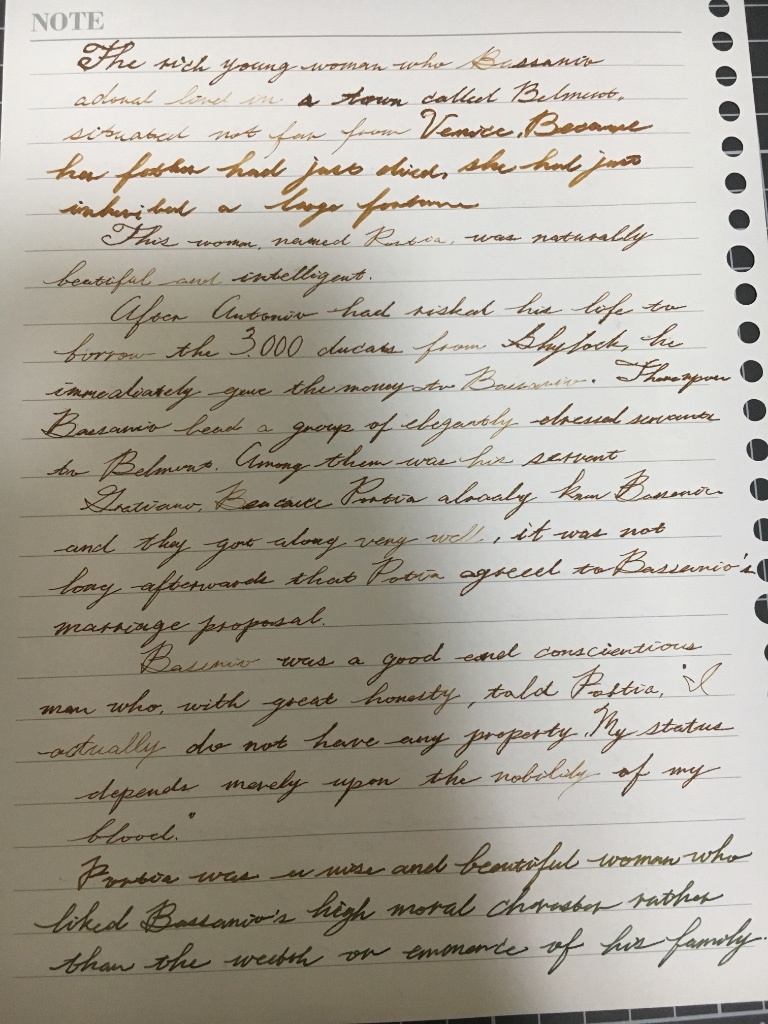 NOTE
The rich young woman who Bassanio
adored lived in a town called Belmont,
situated not far from Venice. Because
her father had just died, she had just
inherited a large fortune
This woman, named Portia, was naturally
beatiful and intelligent.
After Antonio had risked his life to
borrow the 3.000 ducats from Shylock, he
immediately gave the money to Bassanio. Thereupon
Bassanio head a group of elegantly dressed servants
to Belmont. Among them was his servant
Gratiano. Because Portia already knew Bassanio
and they got along very well, it was not
long afterwards that Potia agreed to Bassanio's
marriage proposal.
Bassnio was a good and conscientious
man who, with great honesty, told Portia, "I
actually do not have any property. My status
depends merely upon the nobility of my
blood."
Portia was a wise and beautiful woman who
liked Bassanio's high moral character rather
than the wealth or eminence of his family.